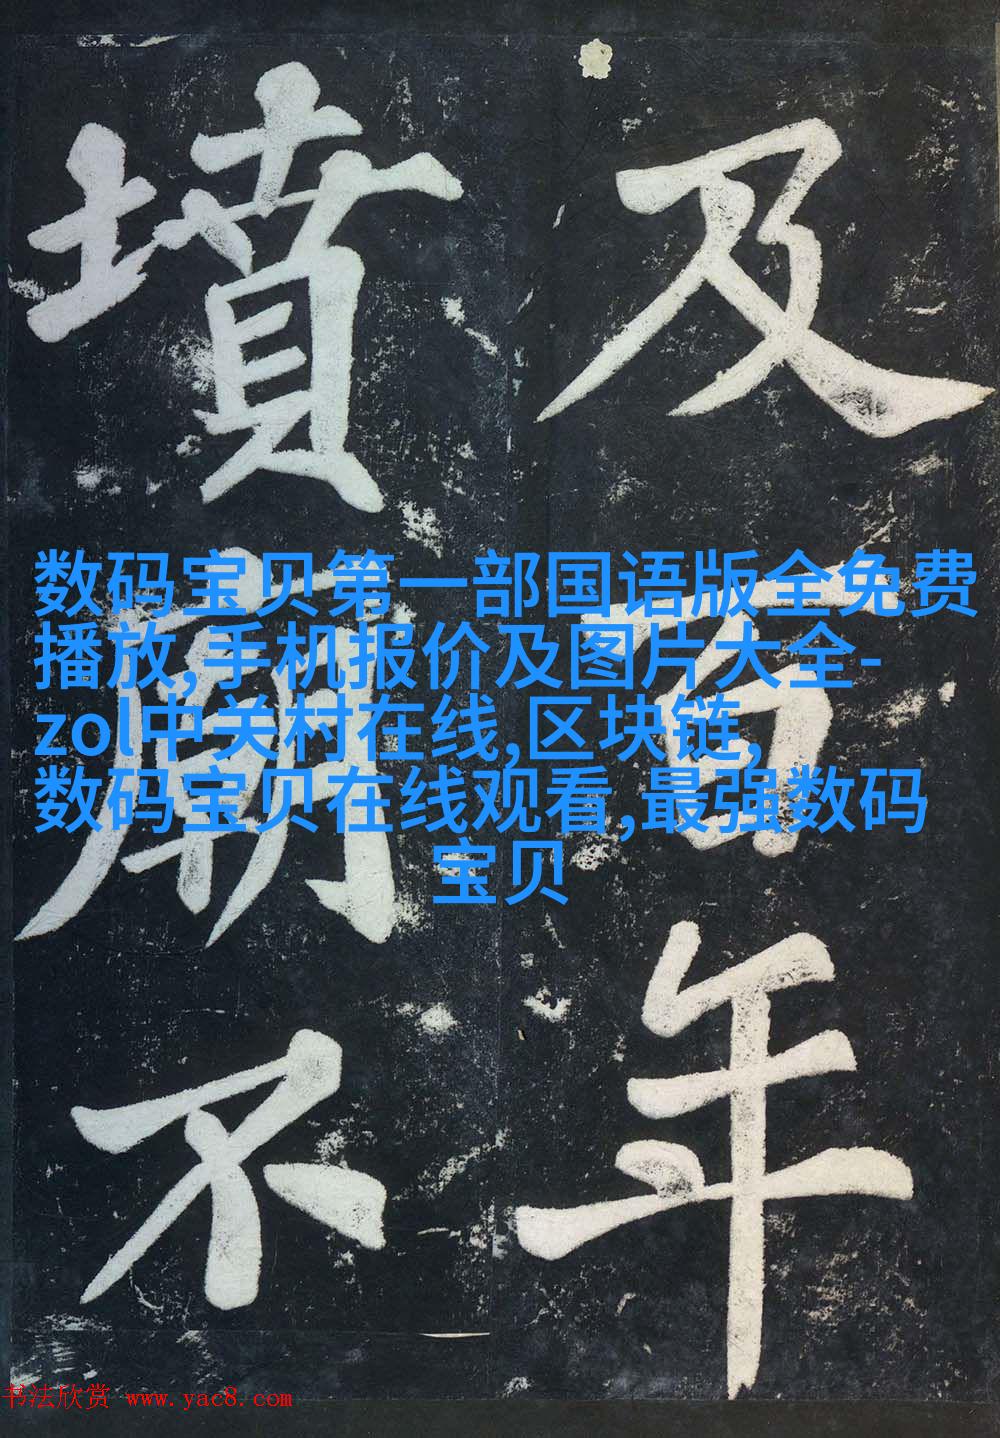 及百年
墳廟不
数码宝贝第一部国语版全免费
播放,手机报价及图片大全-
zol中关村在线,区块链,
数码宝贝在线观看,最强数码
宝贝
书法欣赏 www.yac8.com